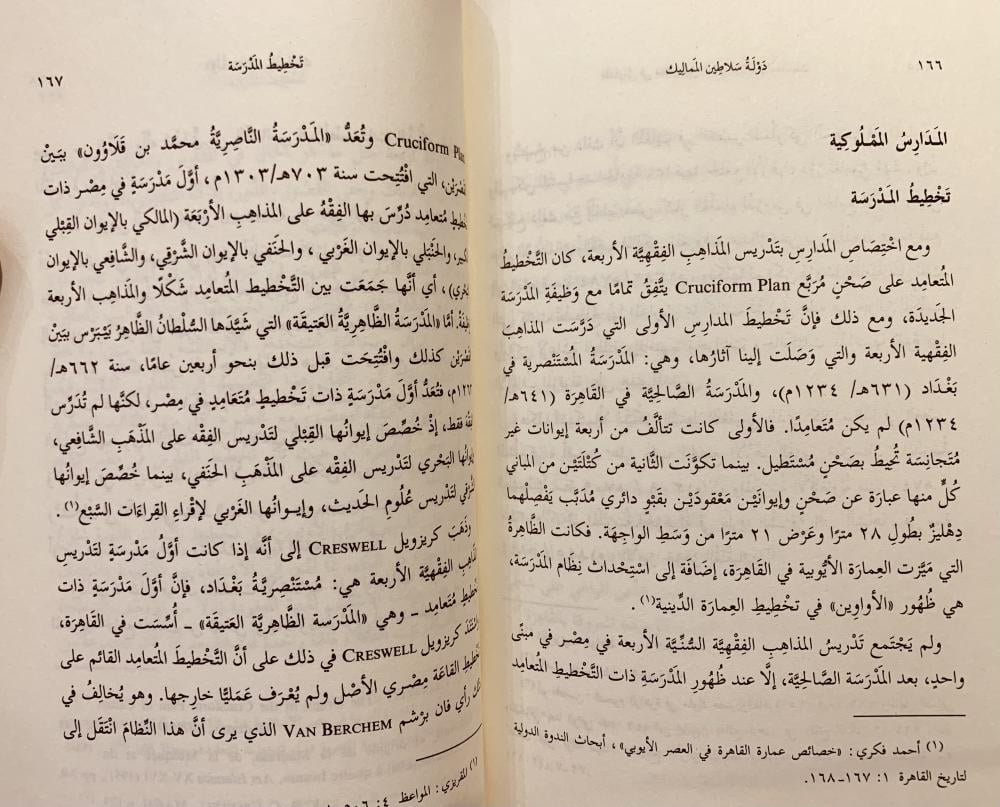 ١٦٦
دَوْلَةُ سَلاطين المَماليك
المَدَارِسُ المَمْلُوكِية
تَخْطِيطُ المَدْرَسَة
ومع اخْتِصَاصِ المدَارِسِ بتَدْريس المَذاهِبِ الفِقْهيَّة الأربعة، كان التَّخْطيطُ
المُتعامِد على صَحْنٍ مُرَبَّع Cruciform Plan يتَّفِقُ تمامًا مع وَظيفَةِ المَدْرَسَة
الجَديدَة، ومع ذلك فإنَّ تَخْطيطَ المدارس الأولى التي دَرَّسَت المذاهِبَ
الفِقْهية الأربعة والتي وَصَلَت إلينا آثارُها، وهي: المَدْرَسَةُ المُسْتَنْصرية في
بَغْدَاد (٦٣١هـ/ ١٢٣٤م)، والمَدْرَسَةُ الصَّالحيَّة في القاهِرَة (٦٤١هـ/
١٢٣٤م) لم يكن مُتَعامِدًا. فالأولى كانت تتألَّفُ من أربعة إيوانات غير
مُتَجانِسَة تُحيطُ بصَحْنٍ مُسْتَطيل. بينما تكوَّنَت الثَّانية من كُتْلَتَيْن من المباني
كُلٍّ منها عبارَة عن صَحْنٍ وإيوانَيْن مَعْقودَيْن بقَبْوٍ دائري مُدَبَّب يَفْصِلْهما
دِهْليزٌ بطُولِ ٢٨ مترًا وعَرْض ٢١ مترًا من وَسَطِ الواجِهَة. فكانت الظَّاهِرةُ
التي مَيَّزت العِمارَة الأيُّوبية في القاهِرَة، إضَافَة إلى اسْتِحْداث نِظَام المَدْرَسَة،
هي ظُهُور «الأواوين» في تَخْطيطِ العِمارَة الدِّينية(١).
ولم يَجْتَمع تَدْريسُ المذاهبِ الفِقْهيَّة السُّنِّيَة الأربعة في مِصْر في مبنًى
واحدٍ، بعد المَدْرَسَة الصَّالحيَّة، إلَّا عند ظُهُورِ المَدْرَسةِ ذات التَّخْطيطِ المُتعامِد
(١) أحمد فكري: «خصائص عمارة القاهرة في العصر الأيوبي»، أبحاث الندوة الدولية
لتاريخ القاهرة ١: ١٦٧-١٦٨.
تَخْطِيطُ المَدْرَسَة
١٦٧
Cruciform Plan وتُعَدُّ «المَدْرَسَةُ النَّاصريَّةُ محمَّد بن قَلاوُون» ببَيْن
التي افْتُتِحت سنة ٧٠٣هـ/١٣٠٣م، أوَّلَ مَدْرَسَةٍ في مِصْر ذات
مُتعامِد دُرِّسَ بها الفِقْهُ على المذاهِبِ الأرْبَعَة (المالكي بالإيوان القِبْلي
والحَنْبَلي بالإيوان الغَرْبي، والحَنَفي بالإيوان الشَّرْقي، والشَّافِعي بالإيوان
أي أنَّها جَمَعَت بين التَّخْطيط المُتعامِد شَكْلًا والمذاهِب الأربعة
أمَّا «المَدْرَسَةُ الظَّاهِريَّةُ العَتيقَة» التي شَيَّدَها السُّلْطانُ الظَّاهِرُ بَيْبَرْس ببَيْن
كذلك وافْتُتِحَت قبل ذلك بنحو أربعين عامًا، سنة ٦٦٢هـ/
فتُعَدُّ أوَّلَ مَدْرَسَةٍ ذات تَخْطيطٍ مُتَعامِدٍ في مِصْر، لكنَّها لم تُدَرِّس
فقط، إذْ خُصِّصَ إيوانُها القِبْلي لتَدْريس الفِقْه على المَذْهَبِ الشَّافِعي،
البَحْري لتَدْريس الفِقْه على المَذْهَبِ الحَنَفي، بينما خُصِّصَ إيوانُها
لتَدْريس عُلُومِ الحَديث، وإيوانُها الغَرْبي لإقْراءِ القِراءَات السَّبْع(١).
وذَهَبَ كريزويل CRESWELL إلى أنَّه إذا كانت أوَّلُ مَدْرسةٍ لتَدْريسِ
الفِقْهيَّة الأربعة هي: مُسْتَنْصريَّةُ بَغْدَاد، فإنَّ أوَّلَ مَدْرَسَةٍ ذات
مُتَعامِد ــ وهي «المَدْرَسة الظَّاهِريَّة العَتيقَة» ــ أُسِّسَت في القاهِرَة،
كريزويل CRESWELL في ذلك على أنَّ التَّخْطيطَ المُتعامِد القائم على
القاعَة مِصْري الأصْل ولم يُعْرَف عَمَليًّا خارجها. وهو يُخالِفُ في
رأي فان برْشم VAN BERCHEM الذي يرى أنَّ هذا النِّظامَ انْتَقَل إلى
(١) المقريزي: المواعظ ٤: